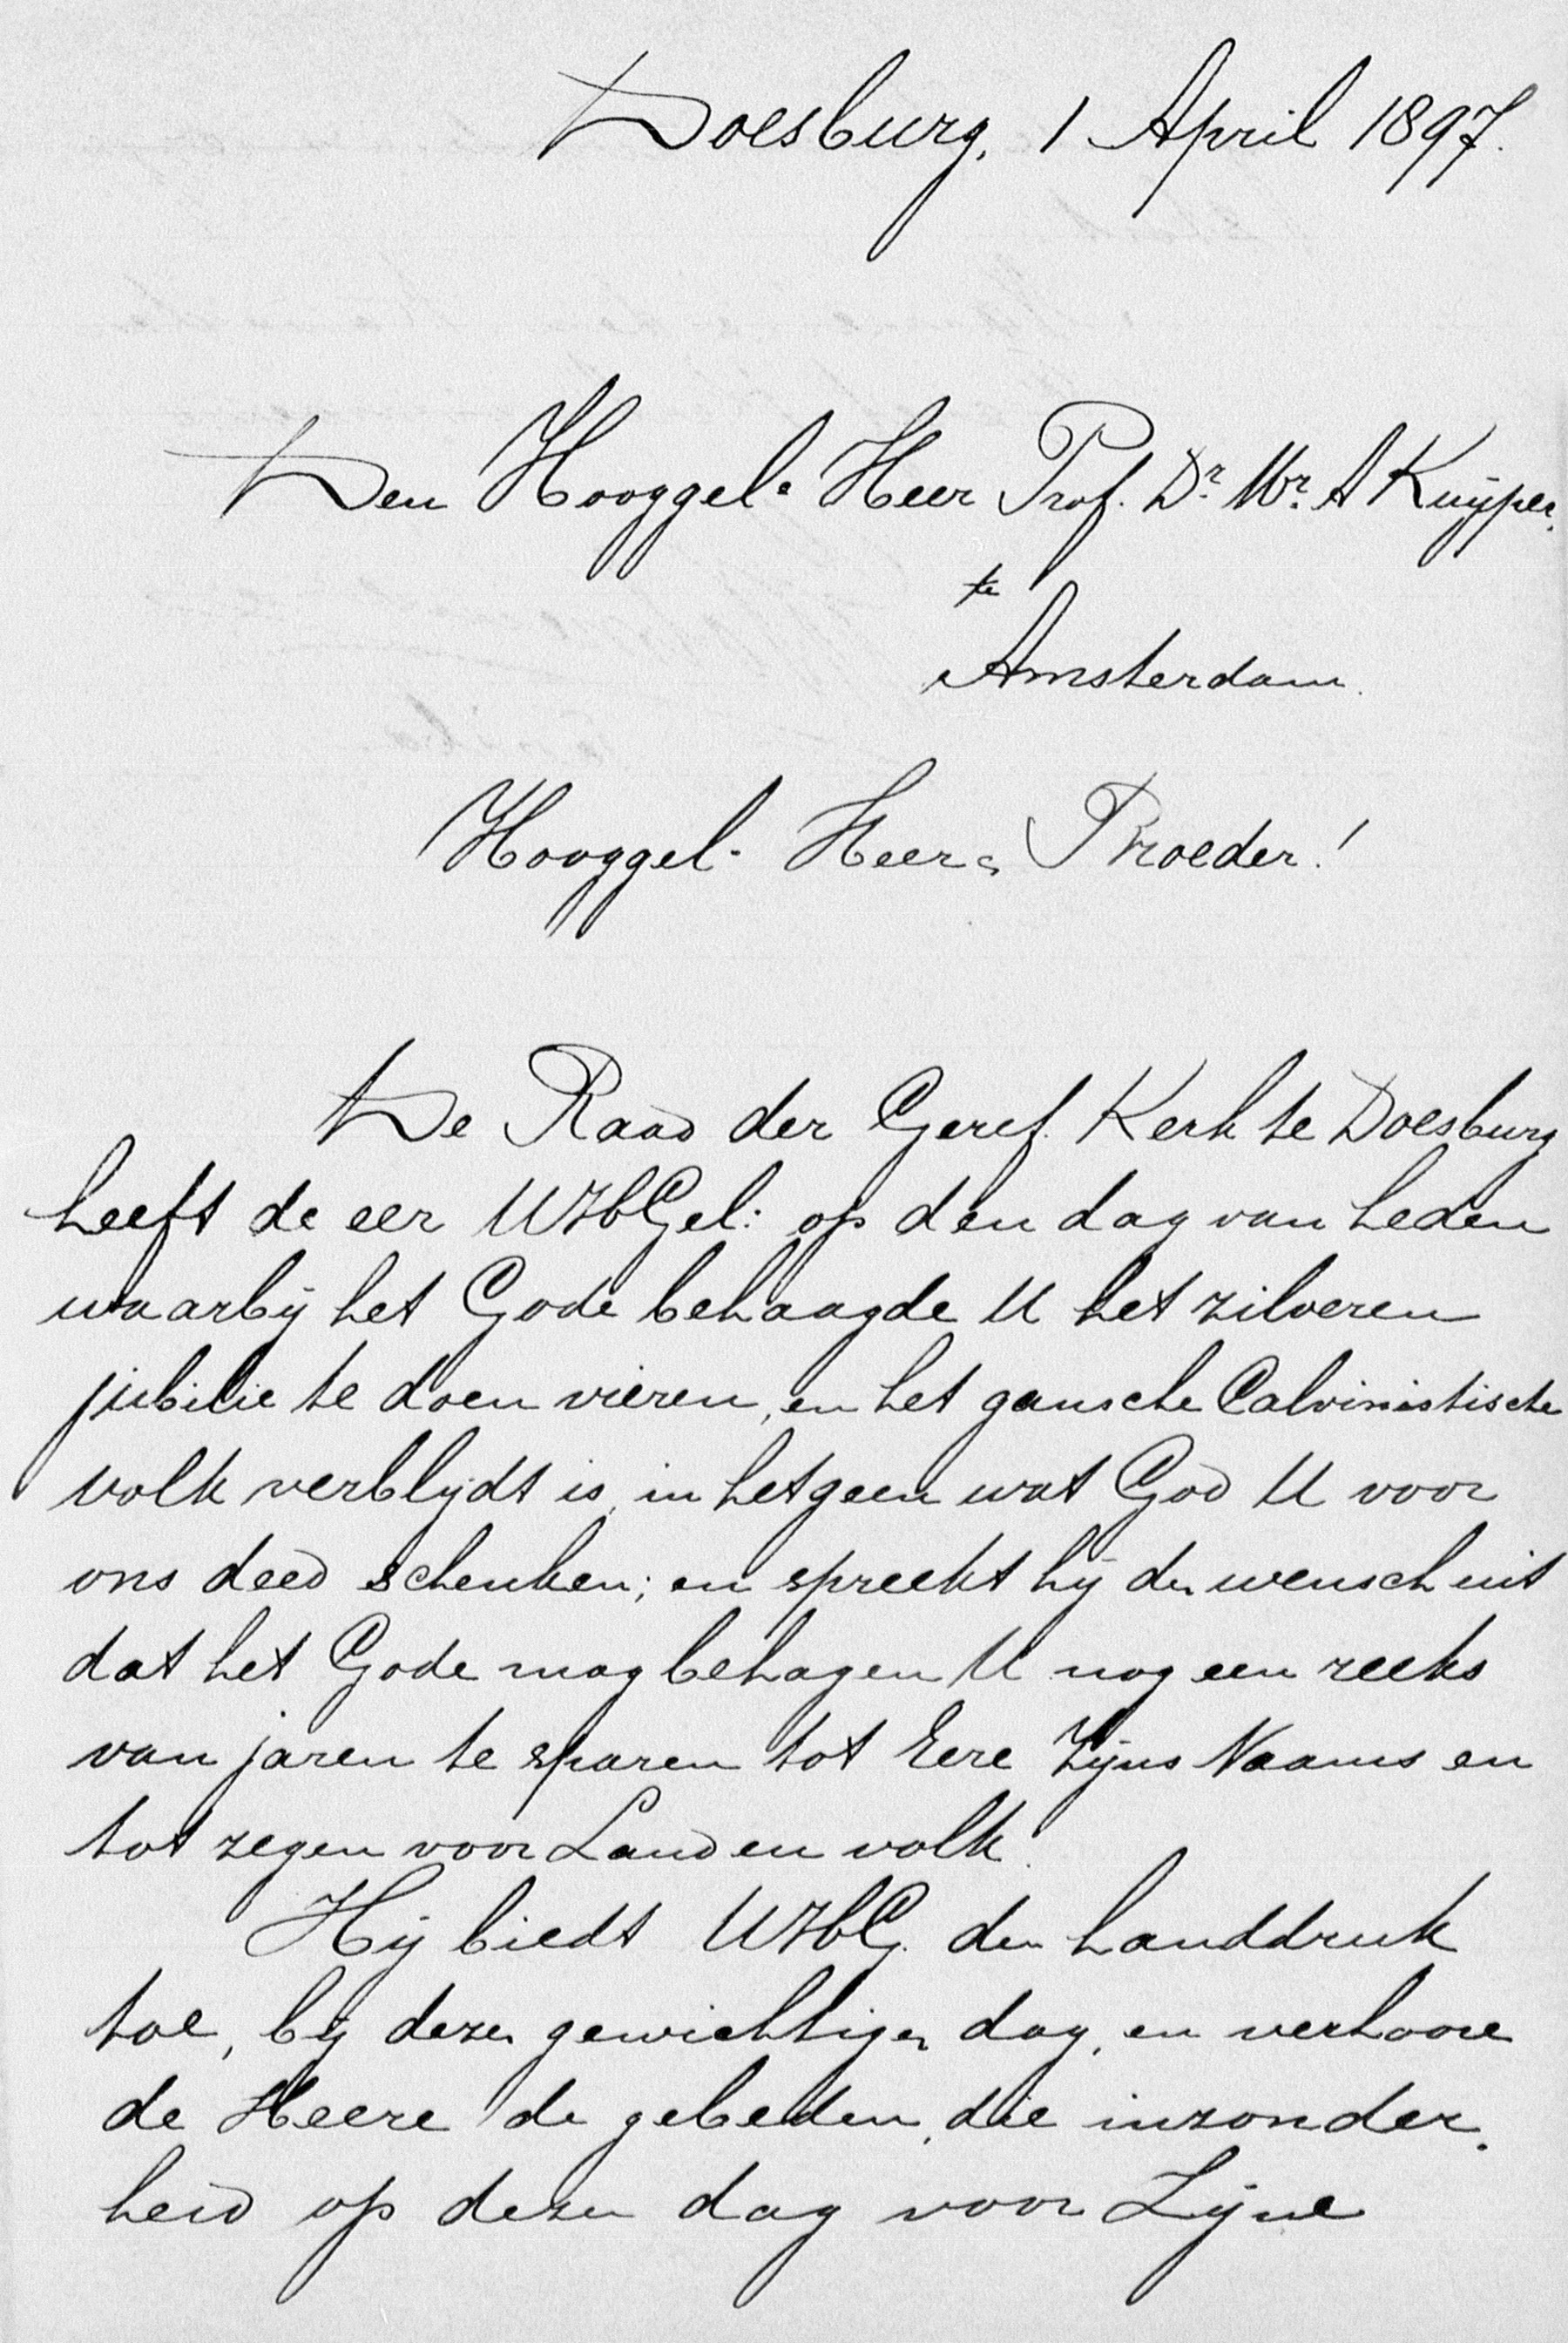 Doesburg, 1 April 1897.
Den Hooggel. Heer Prof. Dr. Mr. A Kuijper,
te
Amsterdam.
Hooggel. Heer & Broeder!
De Raad der Geref. Kerk te Doesburg
heeft de eer UHGel: op den dag van heden
waarbij het Gode behaagde U het zilveren
jubilie te doen vieren, en het gansche Calvinistische
volk verblijdt is, in hetgeen wat God U voor
ons deed schenken; en spreekt hij den wensch uit
dat het Gode mag behagen U nog een reeks
van jaren te sparen tot Eere Zijns Naams en
tot zegen voor Land en volk.
Hij biedt UHG. den handdruk
toe, bij dezen gewichtigen dag, en verhoore
de Heere de gebeden, die inzonder-
heid op dezen dag voor Zijne